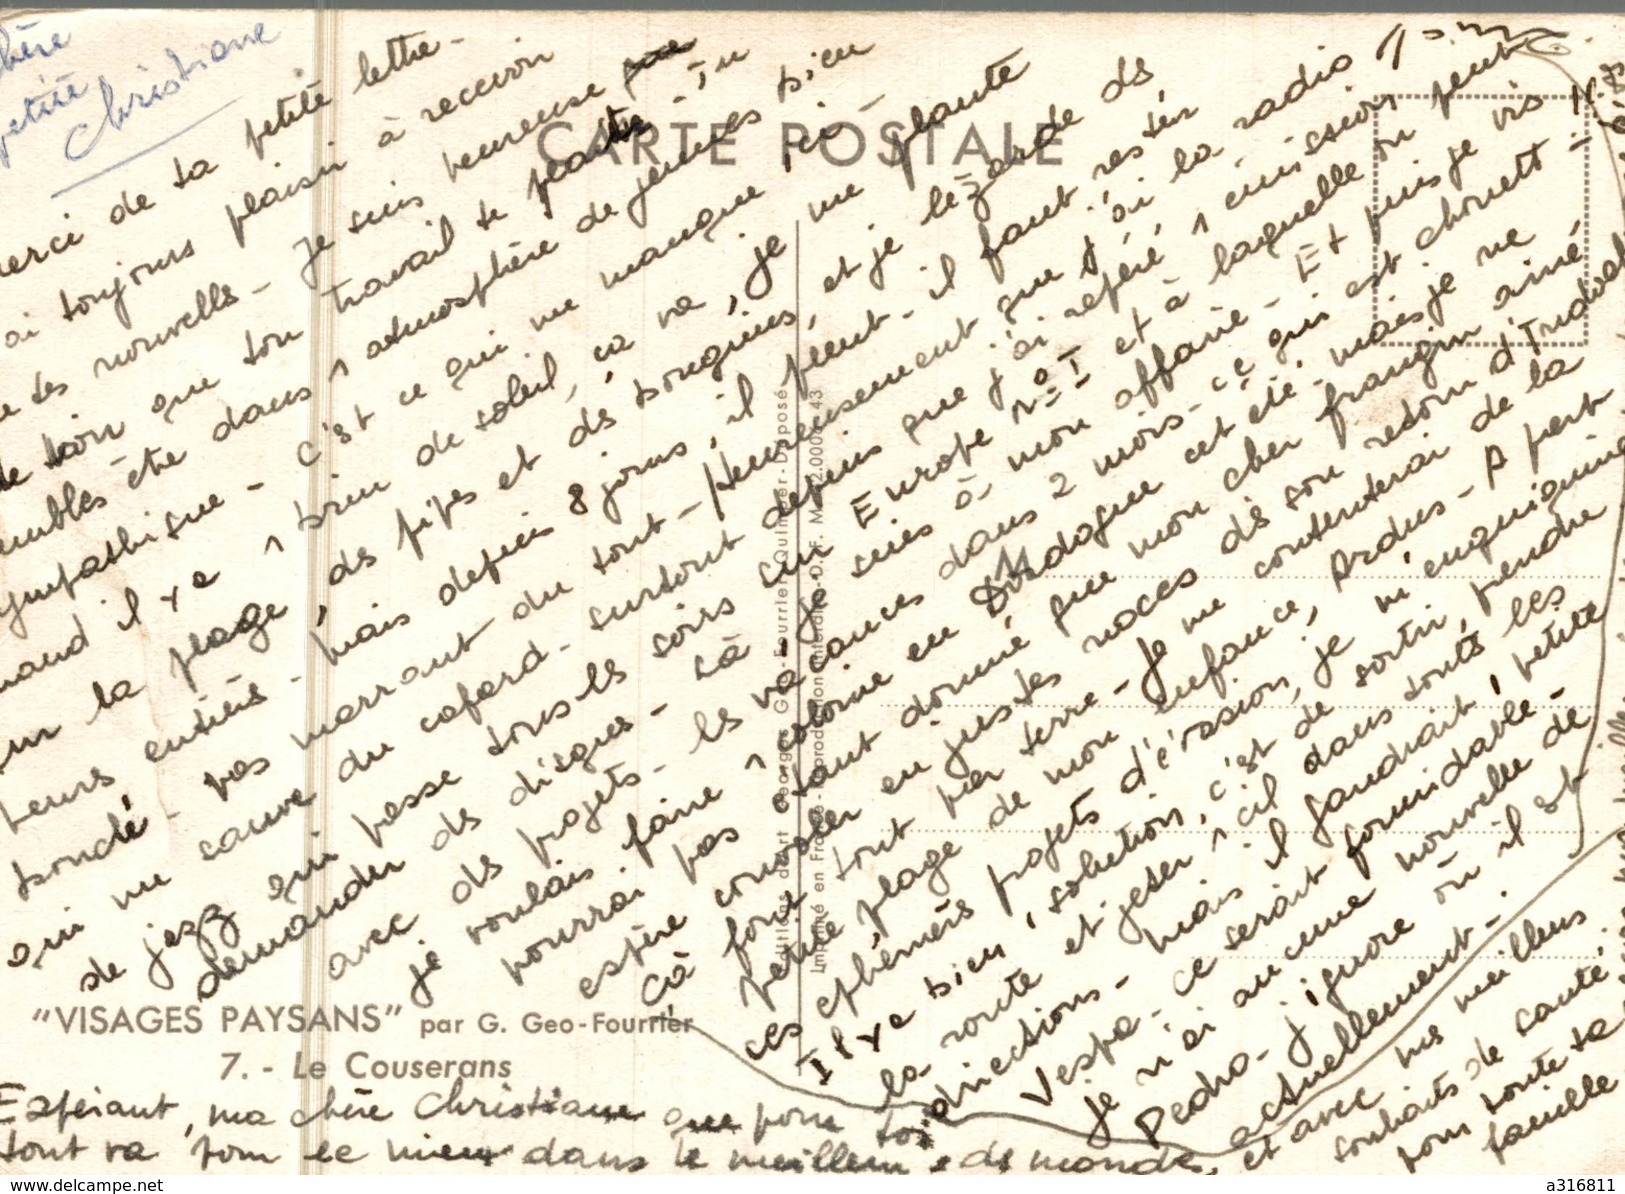 chère
petite
Christiane
merci de ta petite lettre -
ai toujours plaisir à recevoir
de tes nouvelles - Je suis heureuse
de voir que ton travail te plaît - Tu
sembles être dans 1 atmosphère de jeunes bien
sympathique - C'est ce qui me manque ici -
quand il y a 1 brin de soleil, ça va, je me plante
sur la plage, des pipes et des bouquins, et je lézarde des
heures entières - Mais depuis 8 jours, il pleut - il faut rester
bouclé - pas marrant du tout - Heureusement que j'ai la radio
qui me sauve du cafard - surtout depuis que j'ai repéré 1 émission
de jazz qui passe tous les soirs sur Europe N° 1 et à laquelle on peut
demander des disques - là je suis à mon affaire - Et puis je vis
avec des projets - les vacances dans 2 mois - ce qui est chouett -
je voulais faire 1 colonie en Dordogne cet été - mais je ne
pourrai pas étant donné que mon cher frangin aîné
espère convoler en justes noces dès son retour d'
Ça fout tout par terre - Je me contenterai de la
petite plage de mon enfance, Ardus - A part
ces éphémères projets d'évasion, je m'enquiquine
Il y a bien 1 solution, c'est de sortir, prendre
la route et jeter 1 cil dans toutes les
directions - Mais il faudrait 1 petite
Vespa - ce serait formidable -
je n'ai aucune nouvelle de
Pedro - j'ignore où il est
actuellement -
et avec mes meilleurs
souhaits de santé
pour toute ta
famille
CARTE POSTALE
Editions d'art Georges Geo-Fourrier, Quimper - Déposé
Imprimé en France - Reproduction interdite - D. F.
"VISAGES PAYSANS" par G. Geo-Fourrier
7. - Le Couserans
Espérant, ma chère Christiane que pour toi
tout va pour le mieux dans le meilleur des mondes,
delcampe.net
a316811